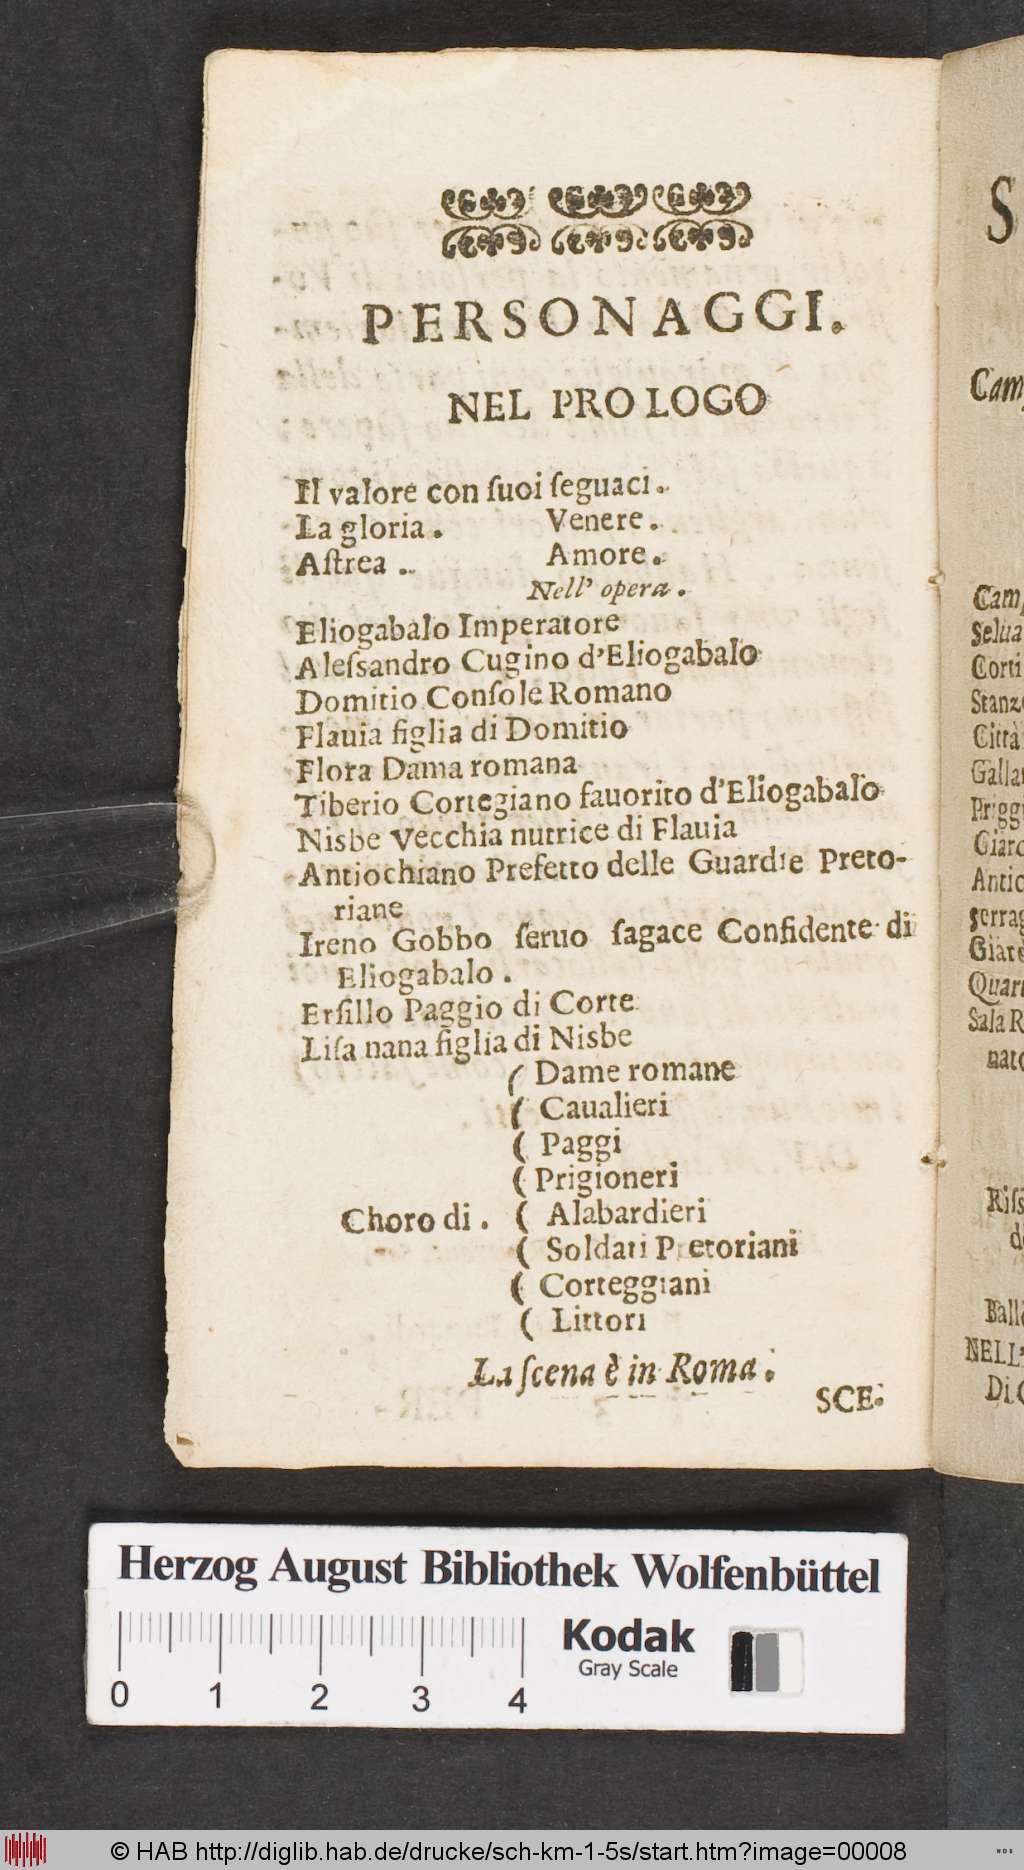 PERSONAGGI.
NEL PROLOGO
Il valore con ſuoi ſeguaci.
La gloria. Venere.
Aſtrea. Amore.
Nell' opera.
Eliogabalo Imperatore
Aleſsandro Cugino d'Eliogabalo
Domitio Conſole Romano
Flauia figlia di Domitio
Flora Dama romana
Tiberio Cortegiano fauorito d'Eliogabalo
Nisbe Vecchia nutrice di Flauia
Antiochiano Prefetto delle Guardie Preto-
riane
Ireno Gobbo ſeruo ſagace Confidente di
Eliogabalo.
Erſillo Paggio di Corte
Liſa nana figlia di Nisbe
( Dame romane
( Caualieri
( Paggi
( Prigioneri
Choro di. ( Alabardieri
( Soldati Pretoriani
( Corteggiani
( Littori
La ſcena è in Roma.
SCE.
S
Cam
Selua
Corti
Città
Antic
Sala R
nato
NELL'
Herzog August Bibliothek Wolfenbüttel
Kodak
Gray Scale
0 1 2 3 4
© HAB http://diglib.hab.de/drucke/sch-km-1-5s/start.htm?image=00008